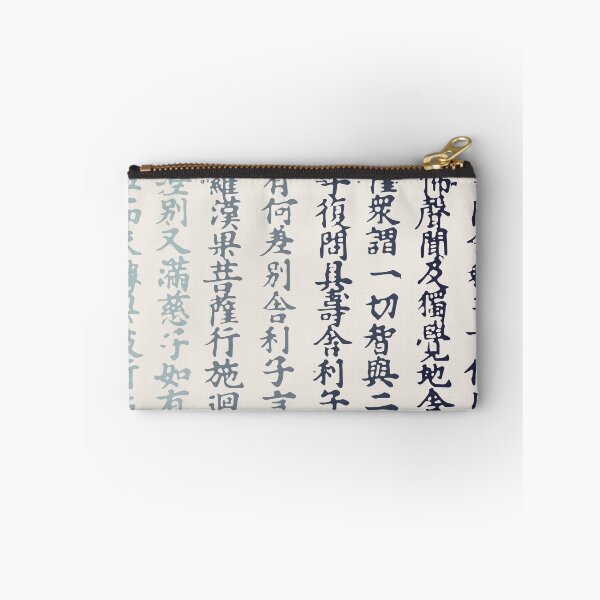 佛聲聞及獨覺地舍
眾謂一切智與二
子復問具壽舍利子
有何差別舍利子言
羅漢果菩薩行施迴
差別又滿慈子如有